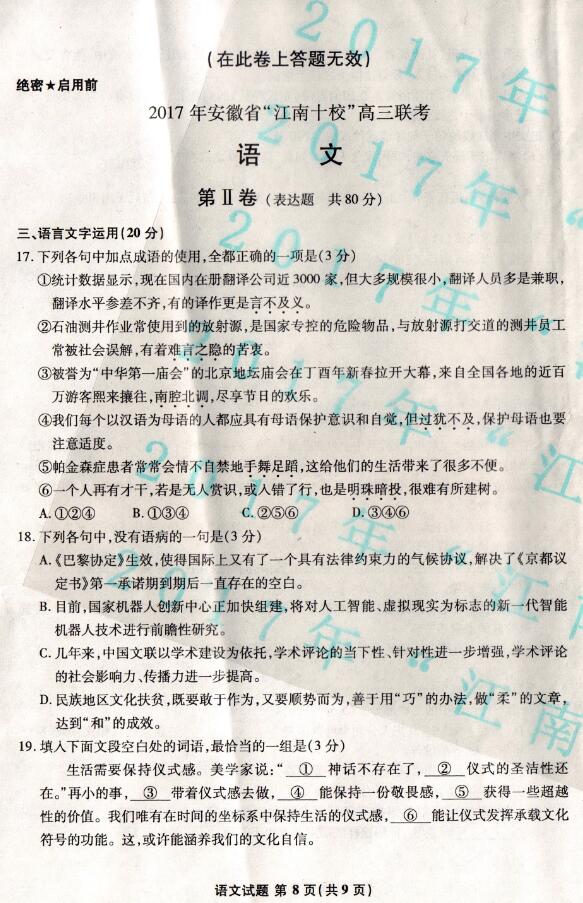 (在此卷上答题无效)
绝密★启用前
2017年安徽省“江南十校”高三联考
语 文
第Ⅱ卷(表达题 共80分)
三、语言文字运用(20分)
17.下列各句中加点成语的使用,全都正确的一项是(3分)
①统计数据显示,现在国内在册翻译公司近3000家,但大多规模很小,翻译人员多是兼职,
翻译水平参差不齐,有的译作更是言不及义。
②石油测井作业常使用到的放射源,是国家专控的危险物品,与放射源打交道的测井员工
常被社会误解,有着难言之隐的苦衷。
③被誉为“中华第一庙会”的北京地坛庙会在丁酉年新春拉开大幕,来自全国各地的近百
万游客熙来攘往,南腔北调,尽享节日的欢乐。
④我们每个以汉语为母语的人都应具有母语保护意识和自觉,但过犹不及,保护母语也要
注意适度。
⑤帕金森症患者常常会情不自禁地手舞足蹈,这给他们的生活带来了很多不便。
⑥一个人再有才干,若是无人赏识,或入错了行,也是明珠暗投,很难有所建树。
A.①②④ B.①③④ C.②⑤⑥ D.③④⑥
18.下列各句中,没有语病的一句是(3分)
A.《巴黎协定》生效,使得国际上又有了一个具有法律约束力的气候协议,解决了《京都议
定书》第一承诺期到期后一直存在的空白。
B.目前,国家机器人创新中心正加快组建,将对人工智能、虚拟现实为标志的新一代智能
机器人技术进行前瞻性研究。
C.几年来,中国文联以学术建设为依托,学术评论的当下性、针对性进一步增强,学术评论
的社会影响力、传播力进一步提高。
D.民族地区文化扶贫,既要敢于作为,又要顺势而为,善于用“巧”的办法,做“柔”的文章,
达到“和”的成效。
19.填入下面文段空白处的词语,最恰当的一组是(3分)
生活需要保持仪式感。美学家说:“ ① 神话不存在了, ② 仪式的圣洁性还
在。”再小的事, ③ 带着仪式感去做, ④ 能保持一份敬畏感, ⑤ 获得一些超越
性的价值。我们唯有在时间的坐标系中保持生活的仪式感, ⑥ 能让仪式发挥承载文化
符号的功能。这,或许能涵养我们的文化自信。
语文试题 第8页(共9页)
2017年
2017年“
2017年“江
2017年“江
2017年“江南